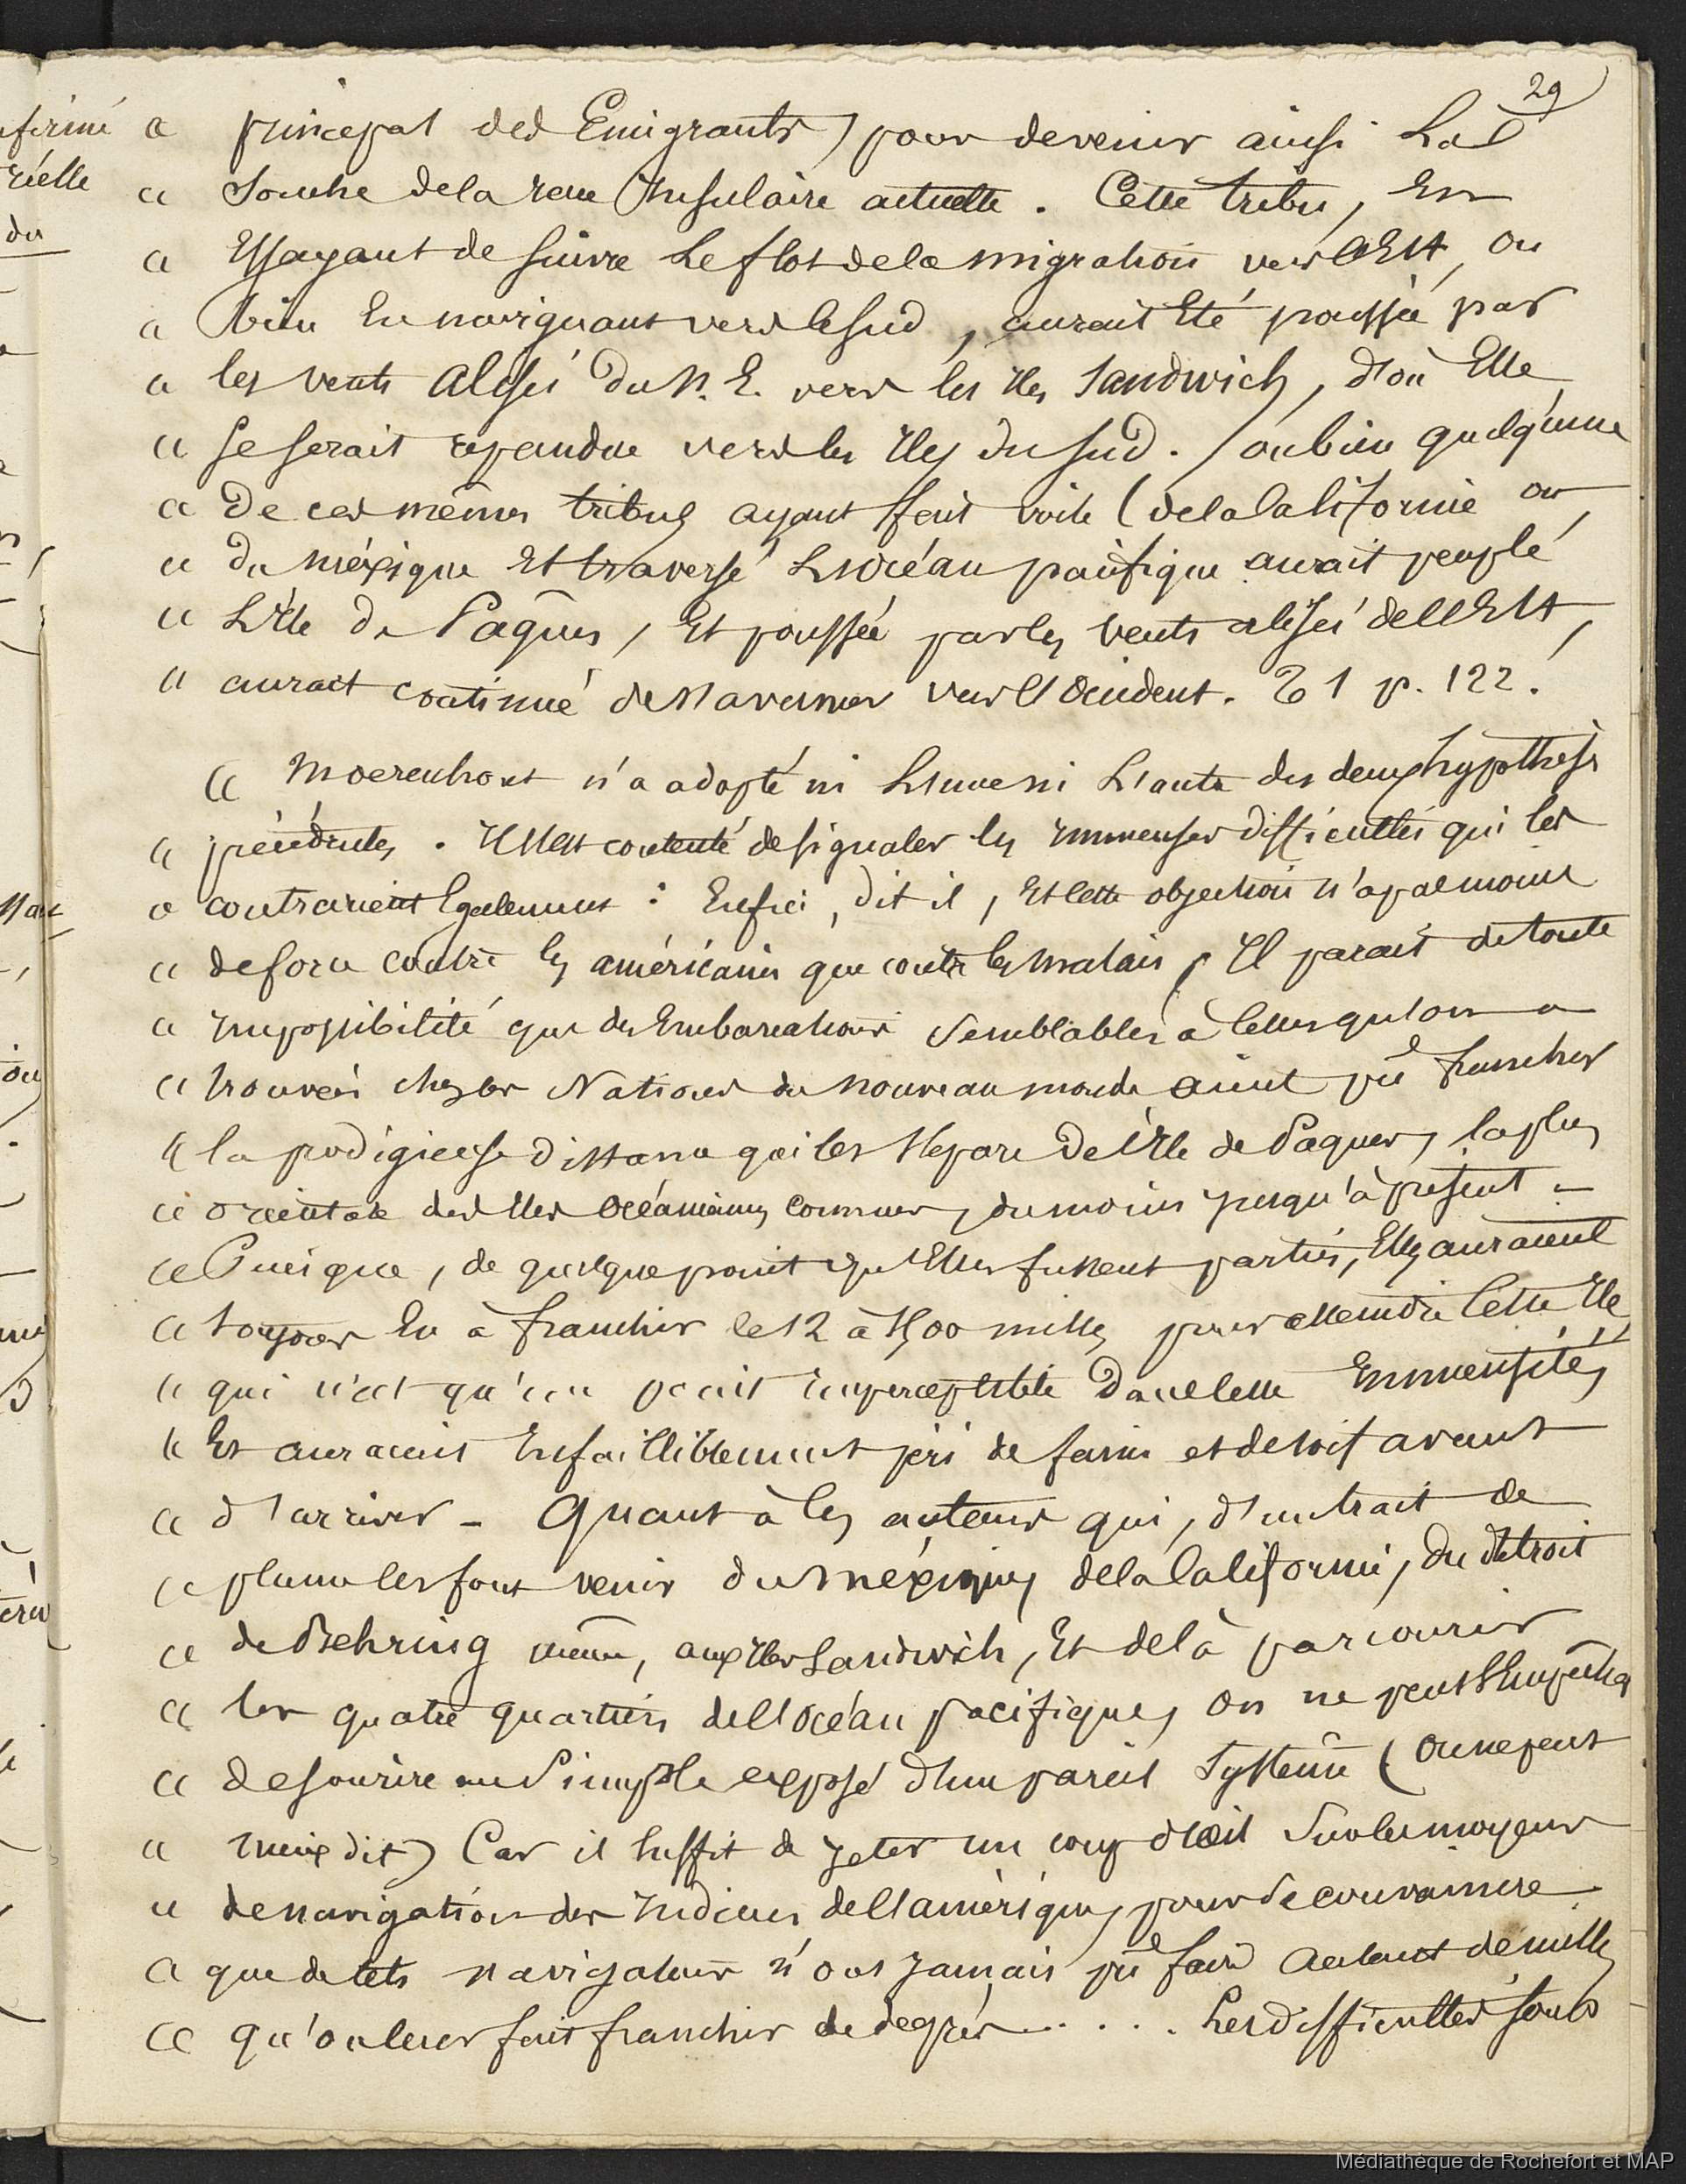 29
« principal des Emigrants) pour devenir ainsi La
« Souche de la race Insulaire actuelle. Cette tribu, En
« Essayant de suivre Le flot de la migration vers l'Est, ou
« bien En naviguant vers le sud, aurait Eté poussée par
« les vents alisés du N. E. vers les Iles Sandwich, d'où Elle
« se serait répandue vers les Iles du sud. / ou bien quelqu'une
« de ces mêmes tribus ayant fait voile (de la Californie ou
« du méxique Et traversé L'océan pacifique aurait peuplé
« L'Ile de Pâques, Et poussée par les vents alisés de l'Est,
« aurait continué de s'avancer vers l'Occident. T 1 p. 122.
« Moerenhout n'a adopté ni L'une ni L'autre des deux hypothèses
« précédentes. Il s'est contenté de signaler les Immenses difficultés qui les
« contrarient Egalement : Enfin, dit il, Et cette objection n'a pas moins
« de force contre les américains que contre les malais, Il parait de toute
« Impossibilité que des Embarcations semblables à celles qu'on a
« trouvées chez les Nations du nouveau monde aient pû franchir
« la prodigieuse distance qui les sépare de l'Ile de Paques, la plus
« orientale des Iles Océaniennes connues, du moins jusqu'à présent –
« Puisque, de quelque point qu'Elles fussent parties, Elles auraient
« toujours Eu à franchir 12 à 1500 milles pour atteindre cette Ile,
« qui n'est qu'un point Imperceptible dans cette Immensité,
« Et auraient Infailliblement péri de faim et de soif avant
« d'arriver – Quant à les auteurs qui, d'un trait de
« plume les font venir du méxique, de la Californie, du détroit
« de Behring même, aux Iles Sandwich, Et de là parcourir
« les quatre quartiers de l'Océan pacifique, on ne peut s'Empêcher
« de sourire au simple exposé d'un pareil Système (on ne peut
« mieux dit) Car il suffit de jeter un coup d'œil sur les moyens
« de navigation des Indiens de l'amérique, pour se convaincre
« que de tels navigateurs n'ont jamais pû faire autant de milles
« qu'on leur fait franchir de degrés . . . . . Les difficultés sont
Médiathèque de Rochefort et MAP